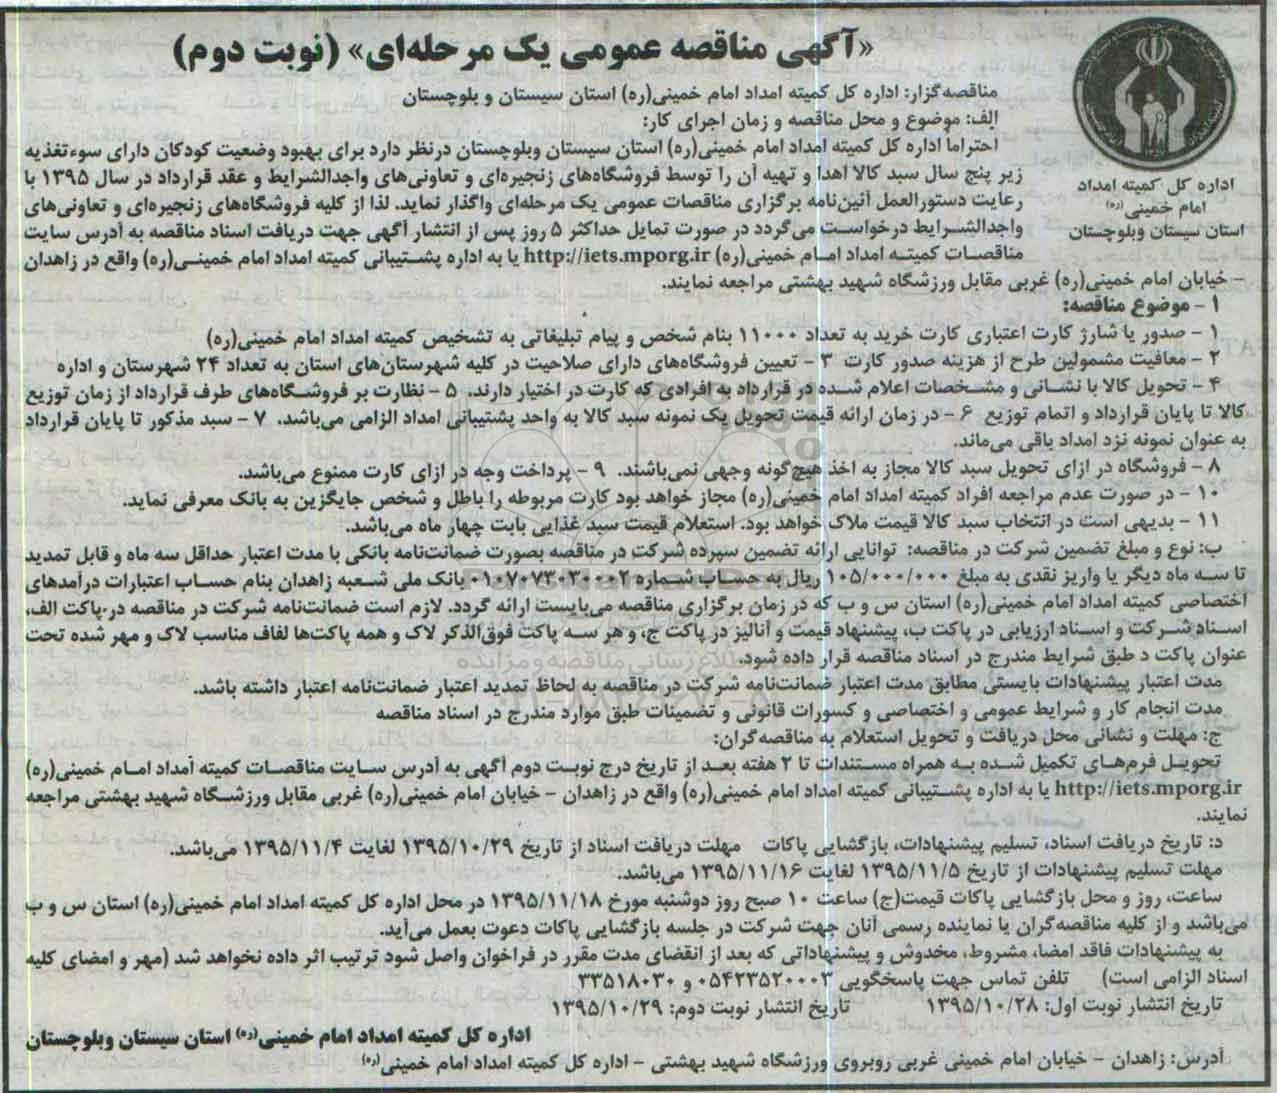 «آگهی مناقصه عمومی یک مرحله‌ای» (نوبت دوم)
اداره کل کمیته امداد
امام خمینی(ره)
استان سیستان وبلوچستان
مناقصه‌گزار: اداره کل کمیته امداد امام خمینی(ره) استان سیستان و بلوچستان
الف: موضوع و محل مناقصه و زمان اجرای کار:
احتراماً اداره کل کمیته امداد امام خمینی(ره) استان سیستان وبلوچستان درنظر دارد برای بهبود وضعیت کودکان دارای سوءتغذیه
زیر پنج سال سبد کالا اهدا و تهیه آن را توسط فروشگاه‌های زنجیره‌ای و تعاونی‌های واجدالشرایط و عقد قرارداد در سال ۱۳۹۵ با
رعایت دستورالعمل آئین‌نامه برگزاری مناقصات عمومی یک مرحله‌ای واگذار نماید. لذا از کلیه فروشگاه‌های زنجیره‌ای و تعاونی‌های
واجدالشرایط درخواست می‌گردد در صورت تمایل حداکثر ۵ روز پس از انتشار آگهی جهت دریافت اسناد مناقصه به آدرس سایت
مناقصات کمیته امداد امام خمینی(ره) http://iets.mporg.ir یا به اداره پشتیبانی کمیته امداد امام خمینی(ره) واقع در زاهدان
– خیابان امام خمینی(ره) غربی مقابل ورزشگاه شهید بهشتی مراجعه نمایند.
۱ – موضوع مناقصه:
۱ – صدور یا شارژ کارت اعتباری کارت خرید به تعداد ۱۱۰۰۰ بنام شخص و پیام تبلیغاتی به تشخیص کمیته امداد امام خمینی(ره)
۲ – معافیت مشمولین طرح از هزینه صدور کارت ۳ – تعیین فروشگاه‌های دارای صلاحیت در کلیه شهرستان‌های استان به تعداد ۲۴ شهرستان و اداره
۴ – تحویل کالا با نشانی و مشخصات اعلام شده در قرارداد به افرادی که کارت در اختیار دارند. ۵ – نظارت بر فروشگاه‌های طرف قرارداد از زمان توزیع
کالا تا پایان قرارداد و اتمام توزیع ۶ – در زمان ارائه قیمت تحویل یک نمونه سبد کالا به واحد پشتیبانی امداد الزامی می‌باشد. ۷ – سبد مذکور تا پایان قرارداد
به عنوان نمونه نزد امداد باقی می‌ماند.
۸ – فروشگاه در ازای تحویل سبد کالا مجاز به اخذ هیچ‌گونه وجهی نمی‌باشند. ۹ – پرداخت وجه در ازای کارت ممنوع می‌باشد.
۱۰ – در صورت عدم مراجعه افراد کمیته امداد امام خمینی(ره) مجاز خواهد بود کارت مربوطه را باطل و شخص جایگزین به بانک معرفی نماید.
۱۱ – بدیهی است در انتخاب سبد کالا قیمت ملاک خواهد بود. استعلام قیمت سبد غذایی بابت چهار ماه می‌باشد.
ب: نوع و مبلغ تضمین شرکت در مناقصه: توانایی ارائه تضمین سپرده شرکت در مناقصه بصورت ضمانت‌نامه بانکی با مدت اعتبار حداقل سه ماه و قابل تمدید
تا سه ماه دیگر یا واریز نقدی به مبلغ ۱۰۵/۰۰۰/۰۰۰ ریال به حساب شماره ۰۱۰۷۰۷۳۰۳۰۰۰۲ بانک ملی شعبه زاهدان بنام حساب اعتبارات درآمدهای
اختصاصی کمیته امداد امام خمینی(ره) استان س و ب که در زمان برگزاری مناقصه می‌بایست ارائه گردد. لازم است ضمانت‌نامه شرکت در مناقصه در پاکت الف،
اسناد شرکت و اسناد ارزیابی در پاکت ب، پیشنهاد قیمت و آنالیز در پاکت ج، و هر سه پاکت فوق‌الذکر لاک و همه پاکت‌ها لفاف مناسب لاک و مهر شده تحت
عنوان پاکت د طبق شرایط مندرج در اسناد مناقصه قرار داده شود.
مدت اعتبار پیشنهادات بایستی مطابق مدت اعتبار ضمانت‌نامه شرکت در مناقصه به لحاظ تمدید اعتبار ضمانت‌نامه اعتبار داشته باشد.
مدت انجام کار و شرایط عمومی و اختصاصی و کسورات قانونی و تضمینات طبق موارد مندرج در اسناد مناقصه
ج: مهلت و نشانی محل دریافت و تحویل استعلام به مناقصه‌گران:
تحویل فرم‌های تکمیل شده به همراه مستندات تا ۲ هفته بعد از تاریخ درج نوبت دوم آگهی به آدرس سایت مناقصات کمیته امداد امام خمینی(ره)
http://iets.mporg.ir یا به اداره پشتیبانی کمیته امداد امام خمینی(ره) واقع در زاهدان – خیابان امام خمینی(ره) غربی مقابل ورزشگاه شهید بهشتی مراجعه
نمایند.
د: تاریخ دریافت اسناد، تسلیم پیشنهادات، بازگشایی پاکات مهلت دریافت اسناد از تاریخ ۱۳۹۵/۱۰/۲۹ لغایت ۱۳۹۵/۱۱/۴ می‌باشد.
مهلت تسلیم پیشنهادات از تاریخ ۱۳۹۵/۱۱/۵ لغایت ۱۳۹۵/۱۱/۱۶ می‌باشد.
ساعت، روز و محل بازگشایی پاکات قیمت(ج) ساعت ۱۰ صبح روز دوشنبه مورخ ۱۳۹۵/۱۱/۱۸ در محل اداره کل کمیته امداد امام خمینی(ره) استان س و ب
می‌باشد و از کلیه مناقصه‌گران یا نماینده رسمی آنان جهت شرکت در جلسه بازگشایی پاکات دعوت بعمل می‌آید.
به پیشنهادات فاقد امضا، مشروط، مخدوش و پیشنهاداتی که بعد از انقضای مدت مقرر در فراخوان واصل شود ترتیب اثر داده نخواهد شد (مهر و امضای کلیه
اسناد الزامی است) تلفن تماس جهت پاسخگویی ۰۵۴۲۳۵۲۰۰۰۳ و ۳۳۵۱۸۰۳۰
تاریخ انتشار نوبت اول: ۱۳۹۵/۱۰/۲۸ تاریخ انتشار نوبت دوم: ۱۳۹۵/۱۰/۲۹
اداره کل کمیته امداد امام خمینی(ره) استان سیستان وبلوچستان
آدرس: زاهدان – خیابان امام خمینی غربی روبروی ورزشگاه شهید بهشتی – اداره کل کمیته امداد امام خمینی(ره)